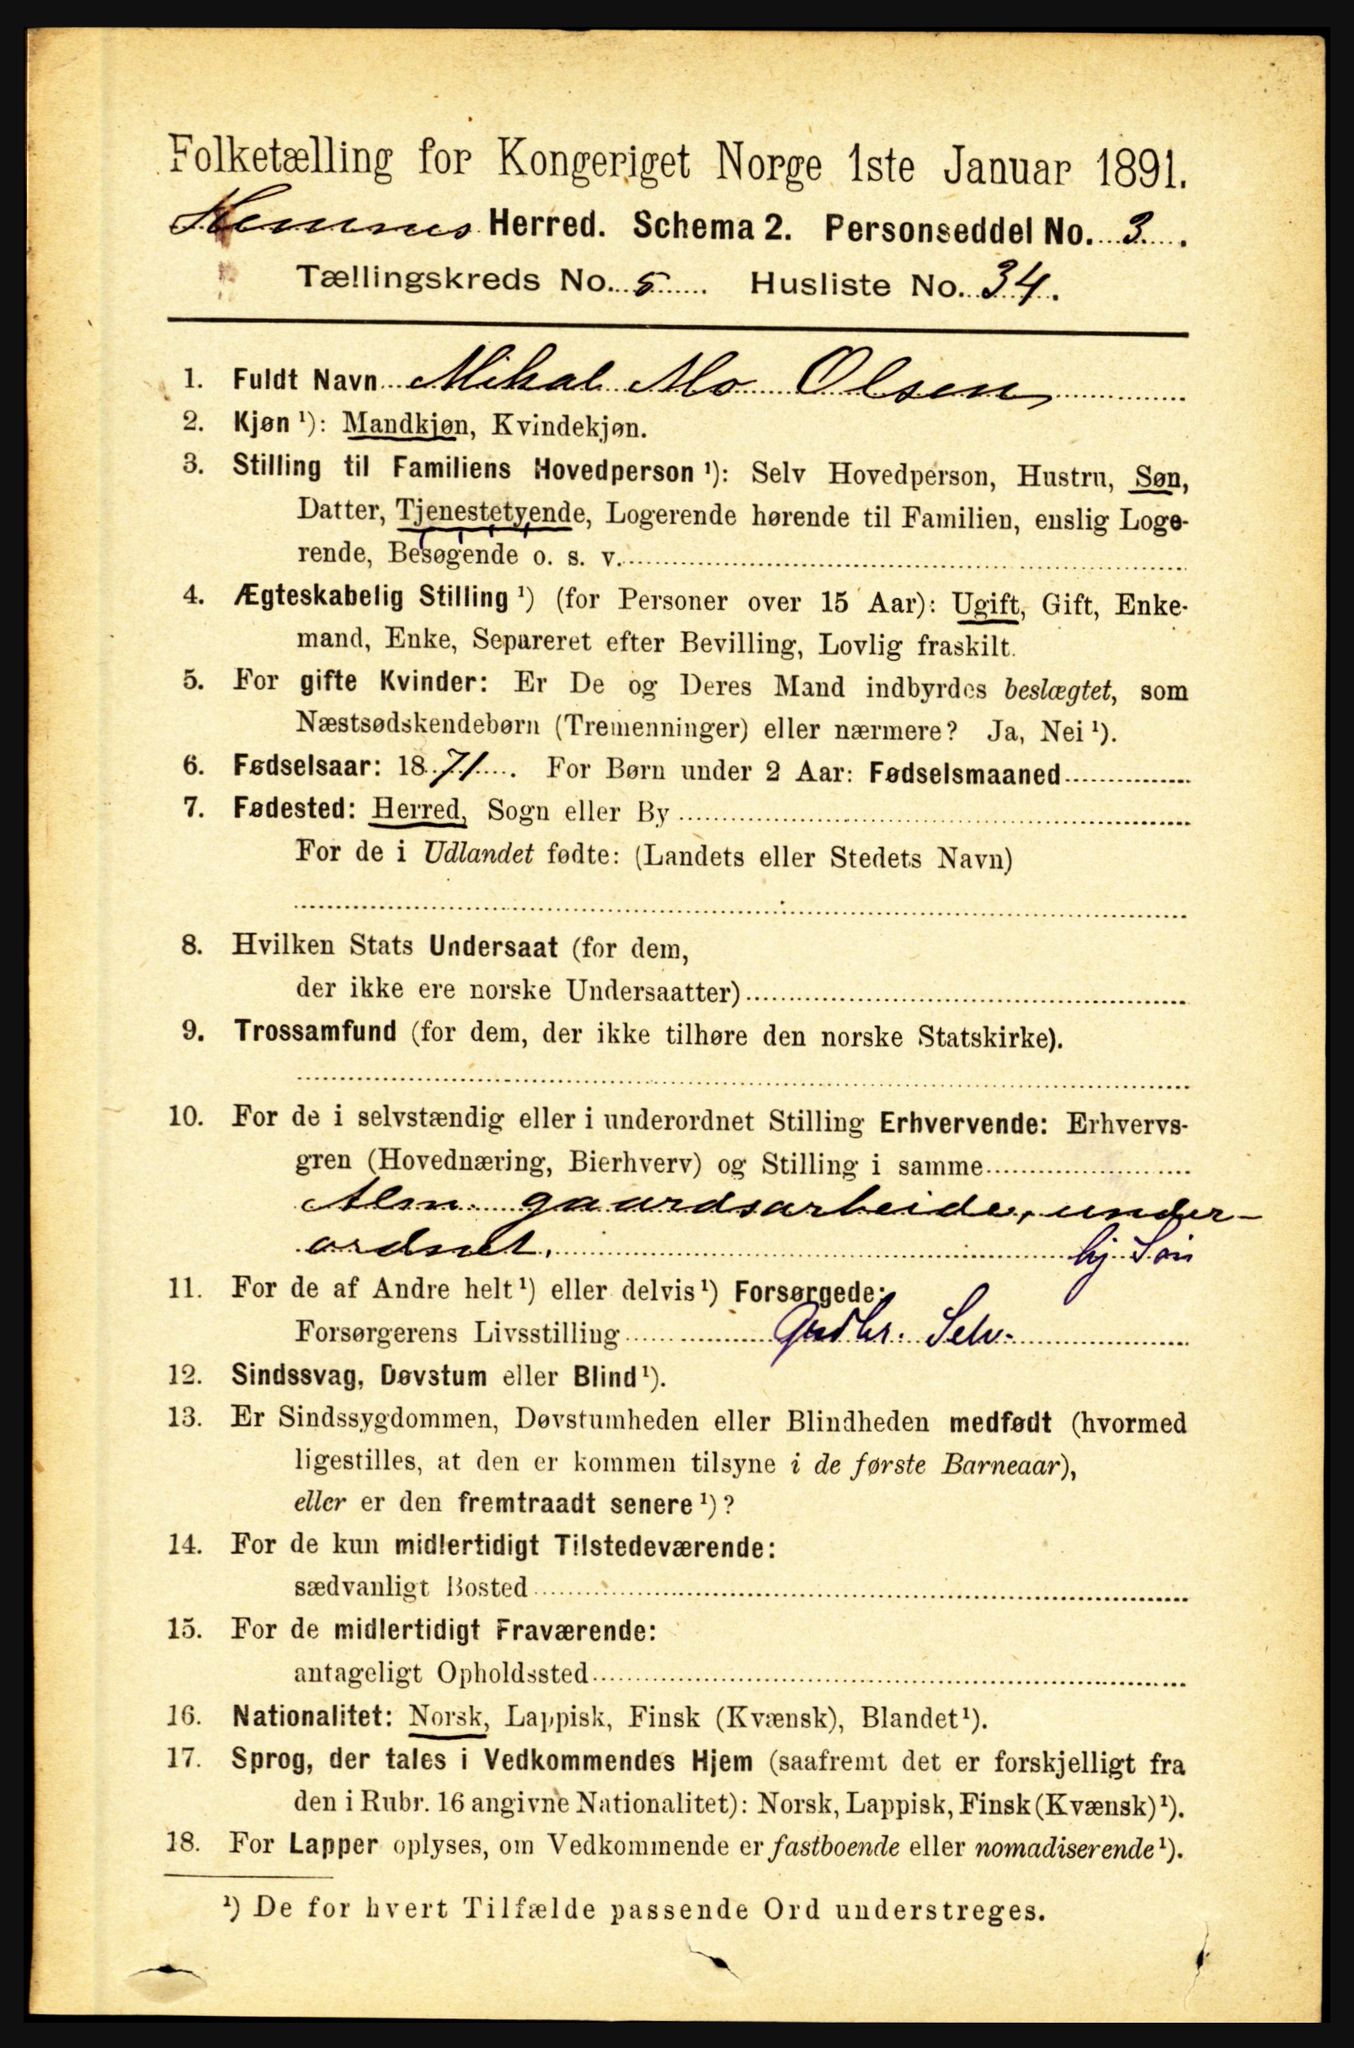 Folketælling for Kongeriget Norge 1ste Januar 1891.
Hemnes Herred. Schema 2. Personseddel No. 3.
Tællingskreds No. 5 Husliste No. 34.
1. Fuldt Navn Mikal Mo Olsen
2. Kjøn ¹): Mandkjøn, Kvindekjøn.
3. Stilling til Familiens Hovedperson ¹): Selv Hovedperson, Hustru, Søn,
Datter, Tjenestetyende, Logerende hørende til Familien, enslig Loge-
rende, Besøgende o. s. v.
4. Ægteskabelig Stilling ¹) (for Personer over 15 Aar): Ugift, Gift, Enke-
mand, Enke, Separeret efter Bevilling, Lovlig fraskilt.
5. For gifte Kvinder: Er De og Deres Mand indbyrdes beslægtet, som
Næstsødskendebørn (Tremenninger) eller nærmere? Ja, Nei ¹).
6. Fødselsaar: 1871. For Børn under 2 Aar: Fødselsmaaned
7. Fødested: Herred, Sogn eller By
For de i Udlandet fødte: (Landets eller Stedets Navn)
8. Hvilken Stats Undersaat (for dem,
der ikke ere norske Undersaatter)
9. Trossamfund (for dem, der ikke tilhøre den norske Statskirke).
10. For de i selvstændig eller i underordnet Stilling Erhvervende: Erhvervs-
gren (Hovednæring, Bierhverv) og Stilling i samme
Alm. gaardsarbeide, under-
ordnet. hj Søn
11. For de af Andre helt ¹) eller delvis ¹) Forsørgede:
Forsørgerens Livsstilling Grdbr. Selv.
12. Sindssvag, Døvstum eller Blind ¹).
13. Er Sindssygdommen, Døvstumheden eller Blindheden medfødt (hvormed
ligestilles, at den er kommen tilsyne i de første Barneaar),
eller er den fremtraadt senere ¹)?
14. For de kun midlertidigt Tilstedeværende:
sædvanligt Bosted
15. For de midlertidigt Fraværende:
antageligt Opholdssted
16. Nationalitet: Norsk, Lappisk, Finsk (Kvænsk), Blandet ¹).
17. Sprog, der tales i Vedkommendes Hjem (saafremt det er forskjelligt fra
den i Rubr. 16 angivne Nationalitet): Norsk, Lappisk, Finsk (Kvænsk) ¹).
18. For Lapper oplyses, om Vedkommende er fastboende eller nomadiserende ¹).
¹) De for hvert Tilfælde passende Ord understreges.